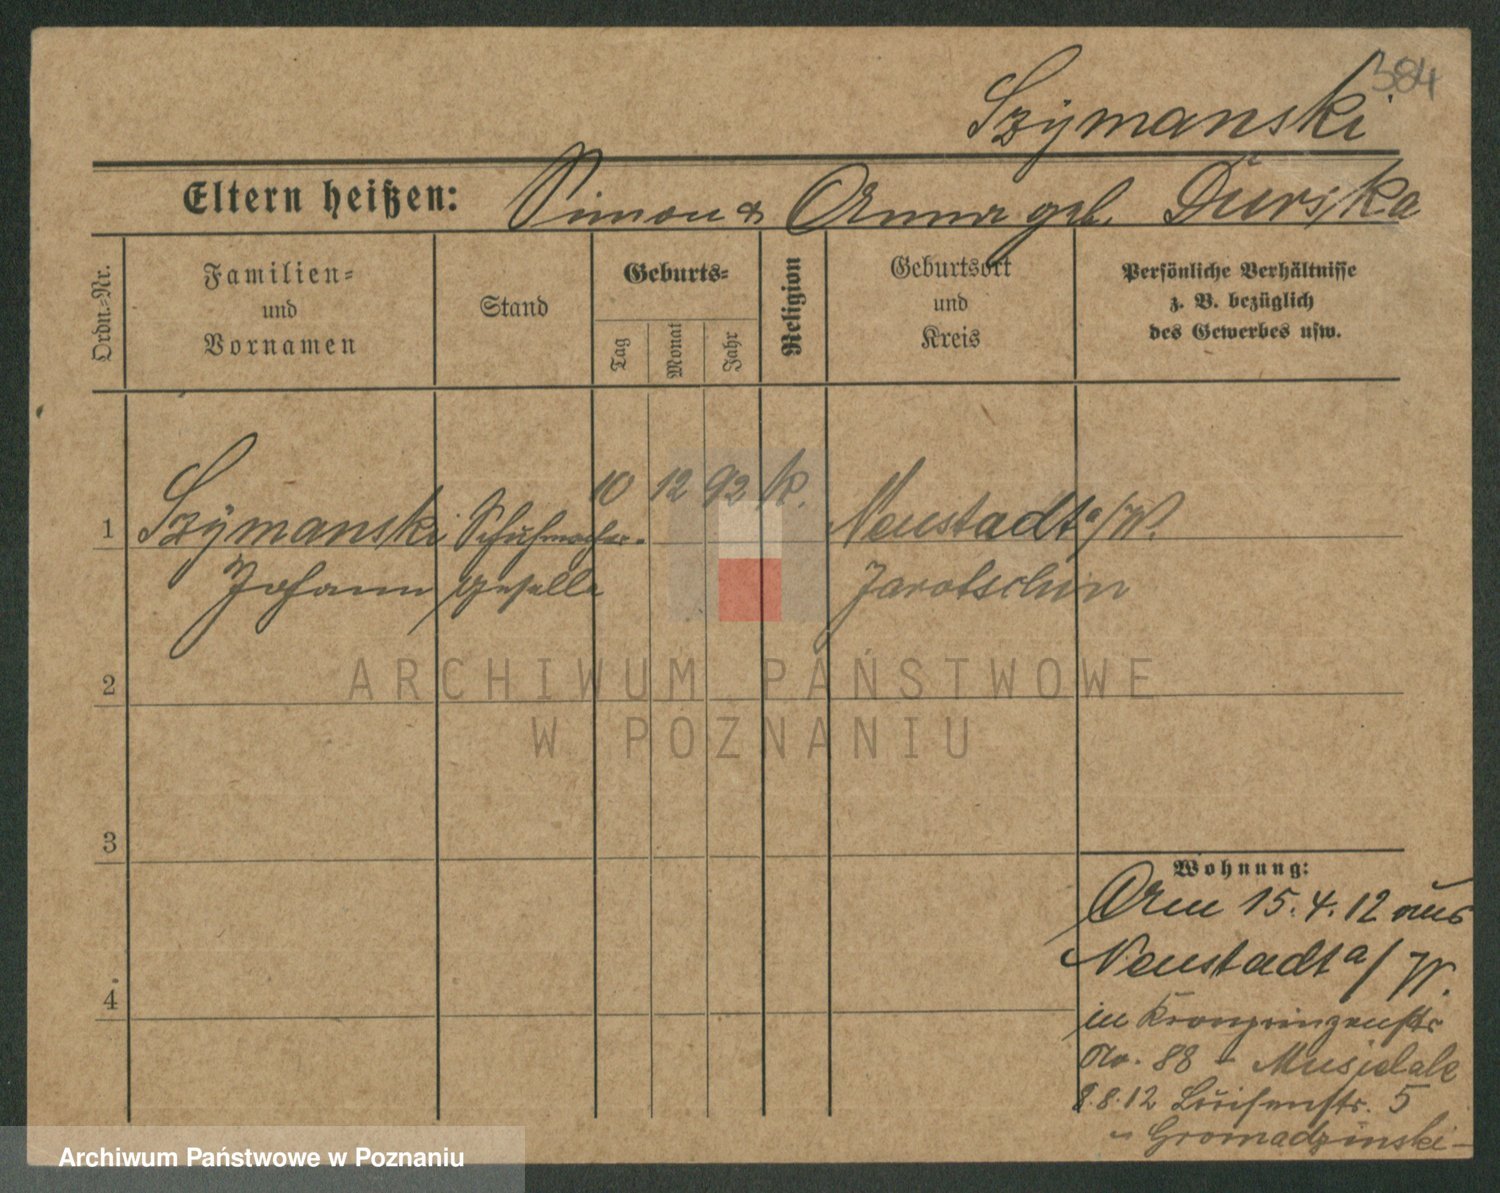 384
Szymanski
Eltern heißen: Simon & Anna geb. Durska
Ordn.-Nr.
Familien-
und
Vornamen
Stand
Geburts-
Tag
Monat
Jahr
Religion
Geburtsort
und
Kreis
Persönliche Verhältnisse
z. B. bezüglich
des Gewerbes usw.
1 Szymanski Schuhmacher- 10 12 92 k. Neustadt a/W.
Johann geselle Jarotschin
2
3
4
Wohnung:
Am 15.4.12 aus
Neustadt a/W.
in Kronprinzenstr
No. 88 - Musidale
8.8.12 Luisenstr. 5
Gromadzinski
ARCHIWUM PAŃSTWOWE
W POZNANIU
Archiwum Państwowe w Poznaniu